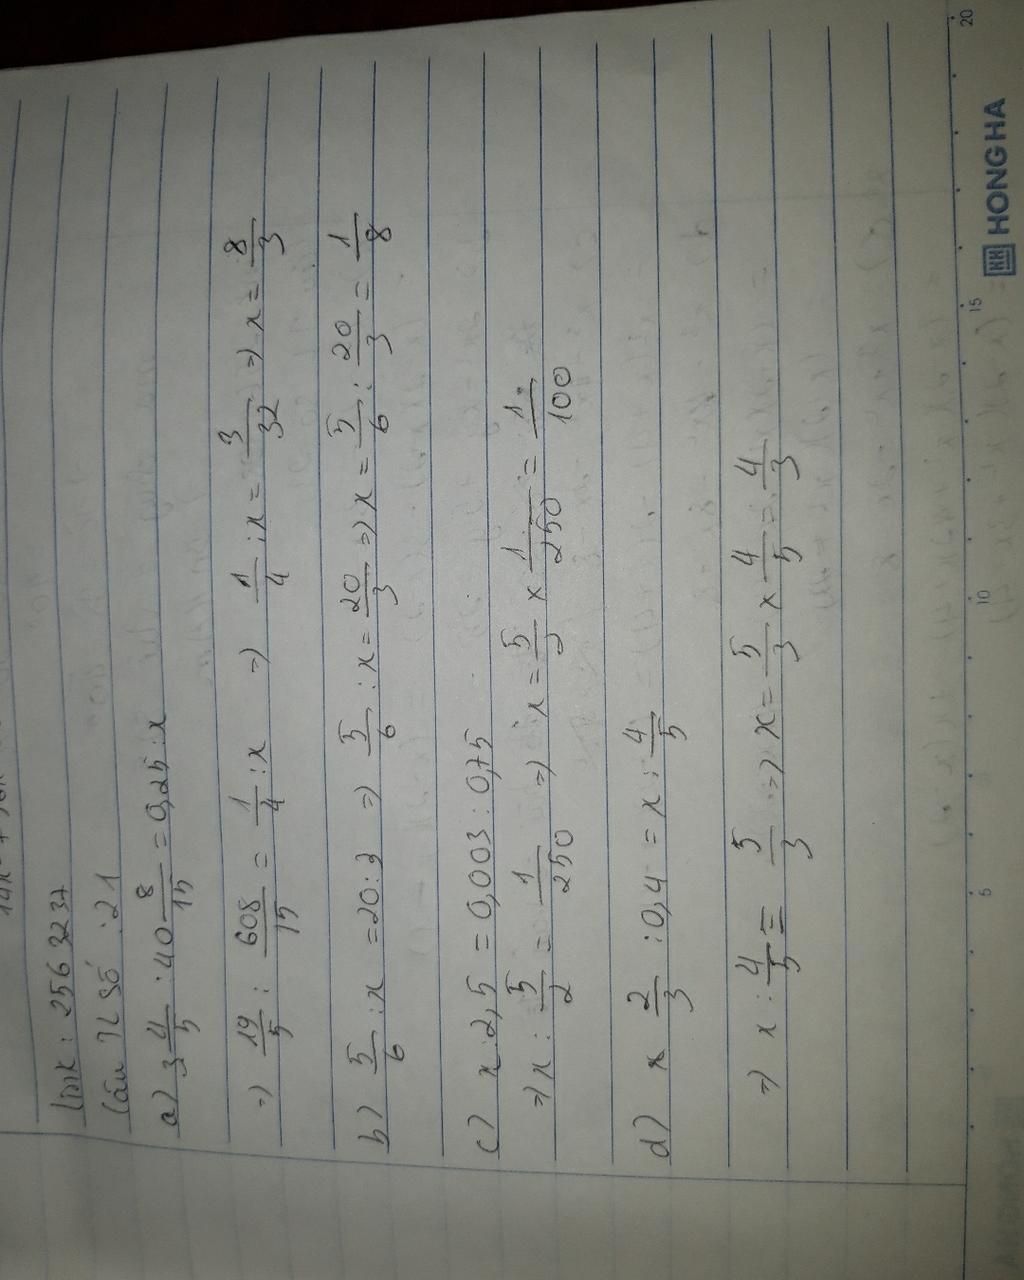 link: 2563237
Câu TL số : 21
a) 3 4/5 : 40 8/15 = 0,25 : x
=> 19/5 : 608/15 = 1/4 : x => 1/4 : x = 3/32 => x = 8/3
b) 5/6 : x = 20 : 3 => 5/6 : x = 20/3 => x = 5/6 : 20/3 = 1/8
c) x : 2,5 = 0,003 : 0,75
=> x : 5/2 = 1/250 => x = 5/2 x 1/250 = 1/100
d) x 2/3 : 0,4 = x : 4/5
=> x : 4/5 = 5/3 => x = 5/3 x 4/5 = 4/3
5 10 15 20
HH HONG HA